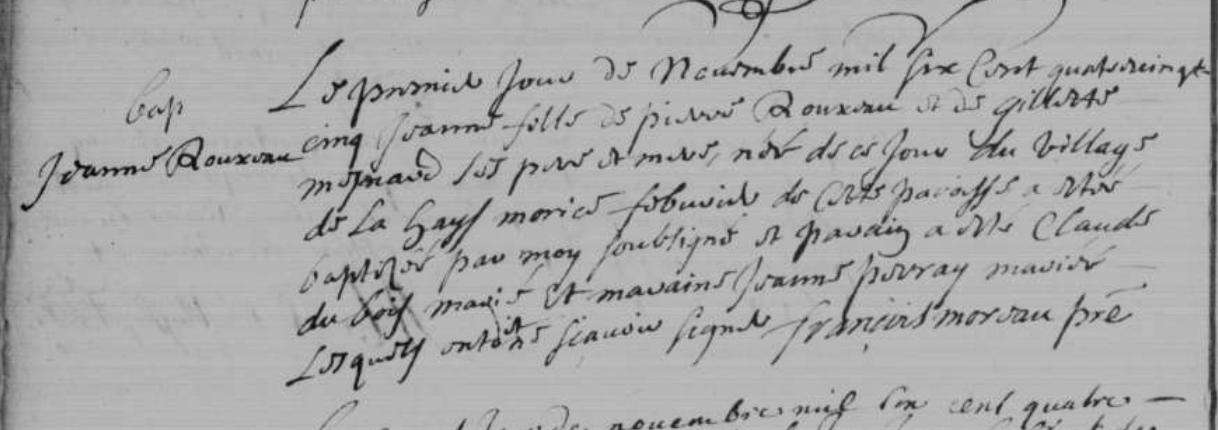 bap
Jeanne Rouxeau
Le premier Jour de Novembre mil six Cent quatrevingt
cinq Jeanne fille de pierre Rouxeau et de Gillette
mesnard ses pere et mere, née de ce Jour du village
de la haye morice de cette paroisse a esté
baptizée par moy soubsigné et parain a esté Claude
du bois marié et maraine Jeanne perray mariée
Lesquels ont dit ne sçavoir signer françois moreau pre
novembre mil six cent quatre